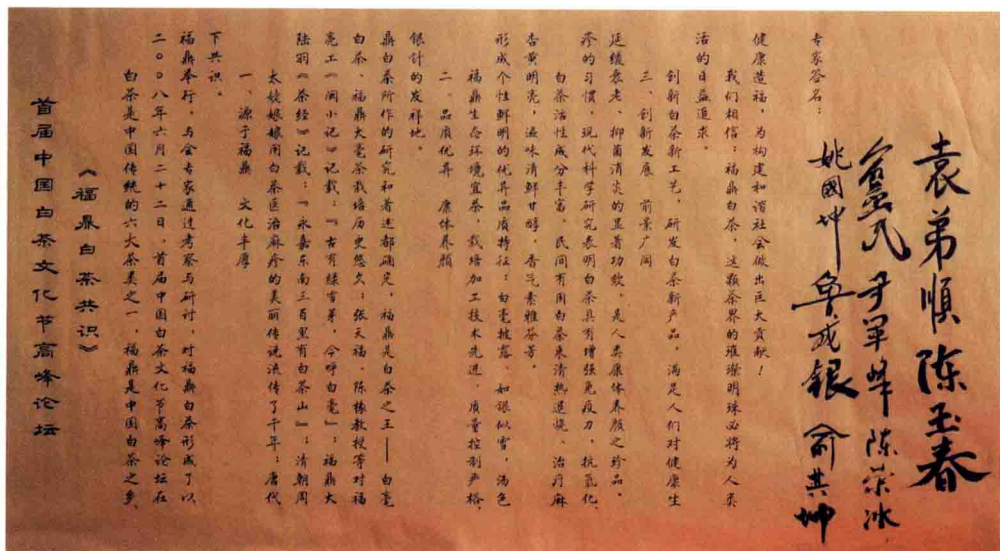 首届中国白茶文化节高峰论坛
《福鼎白茶共识》
白茶是中国传统的六大茶类之一,福鼎是中国白茶之乡。
二〇〇八年六月二十二日,首届中国白茶文化节高峰论坛在
福鼎举行,与会专家通过考察与研讨,对福鼎白茶形成了以
下共识。
一、源于福鼎 文化丰厚
太姥娘娘用白茶医治麻疹的美丽传说流传了千年;唐代
陆羽《茶经》记载:『永嘉东南三百里有白茶山』;清朝周
亮工《闽小记》记载:『古有绿雪芽,今呼白毫』;福鼎大
白茶、福鼎大毫茶栽培历史悠久;张天福、陈椽教授等对福
鼎白茶所作的研究和著述都确定,福鼎是白茶之王——白毫
银针的发祥地。
二、品质优异 康体养颜
福鼎生态环境宜茶,栽培加工技术先进,质量控制严格,
形成个性鲜明的优异品质特征:白毫披露、如银似雪,汤色
杏黄明亮,滋味清鲜甘醇,香气素雅芬芳。
白茶活性成分丰富,民间有用白茶来清热退烧、治疗麻
疹的习惯,现代科学研究表明白茶具有增强免疫力,抗氧化、
延缓衰老、抑菌消炎的显著功效,是人类康体养颜之珍品。
三、创新发展 前景广阔
创新白茶新工艺,研发白茶新产品,满足人们对健康生
活的日益追求。
我们相信:福鼎白茶,这颗茶界的璀璨明珠必将为人类
健康造福,为构建和谐社会做出巨大贡献!
专家签名:
姚國坤 魯成銀 俞其坤
尹军峰 陈荣冰
袁弟順 陈玉春